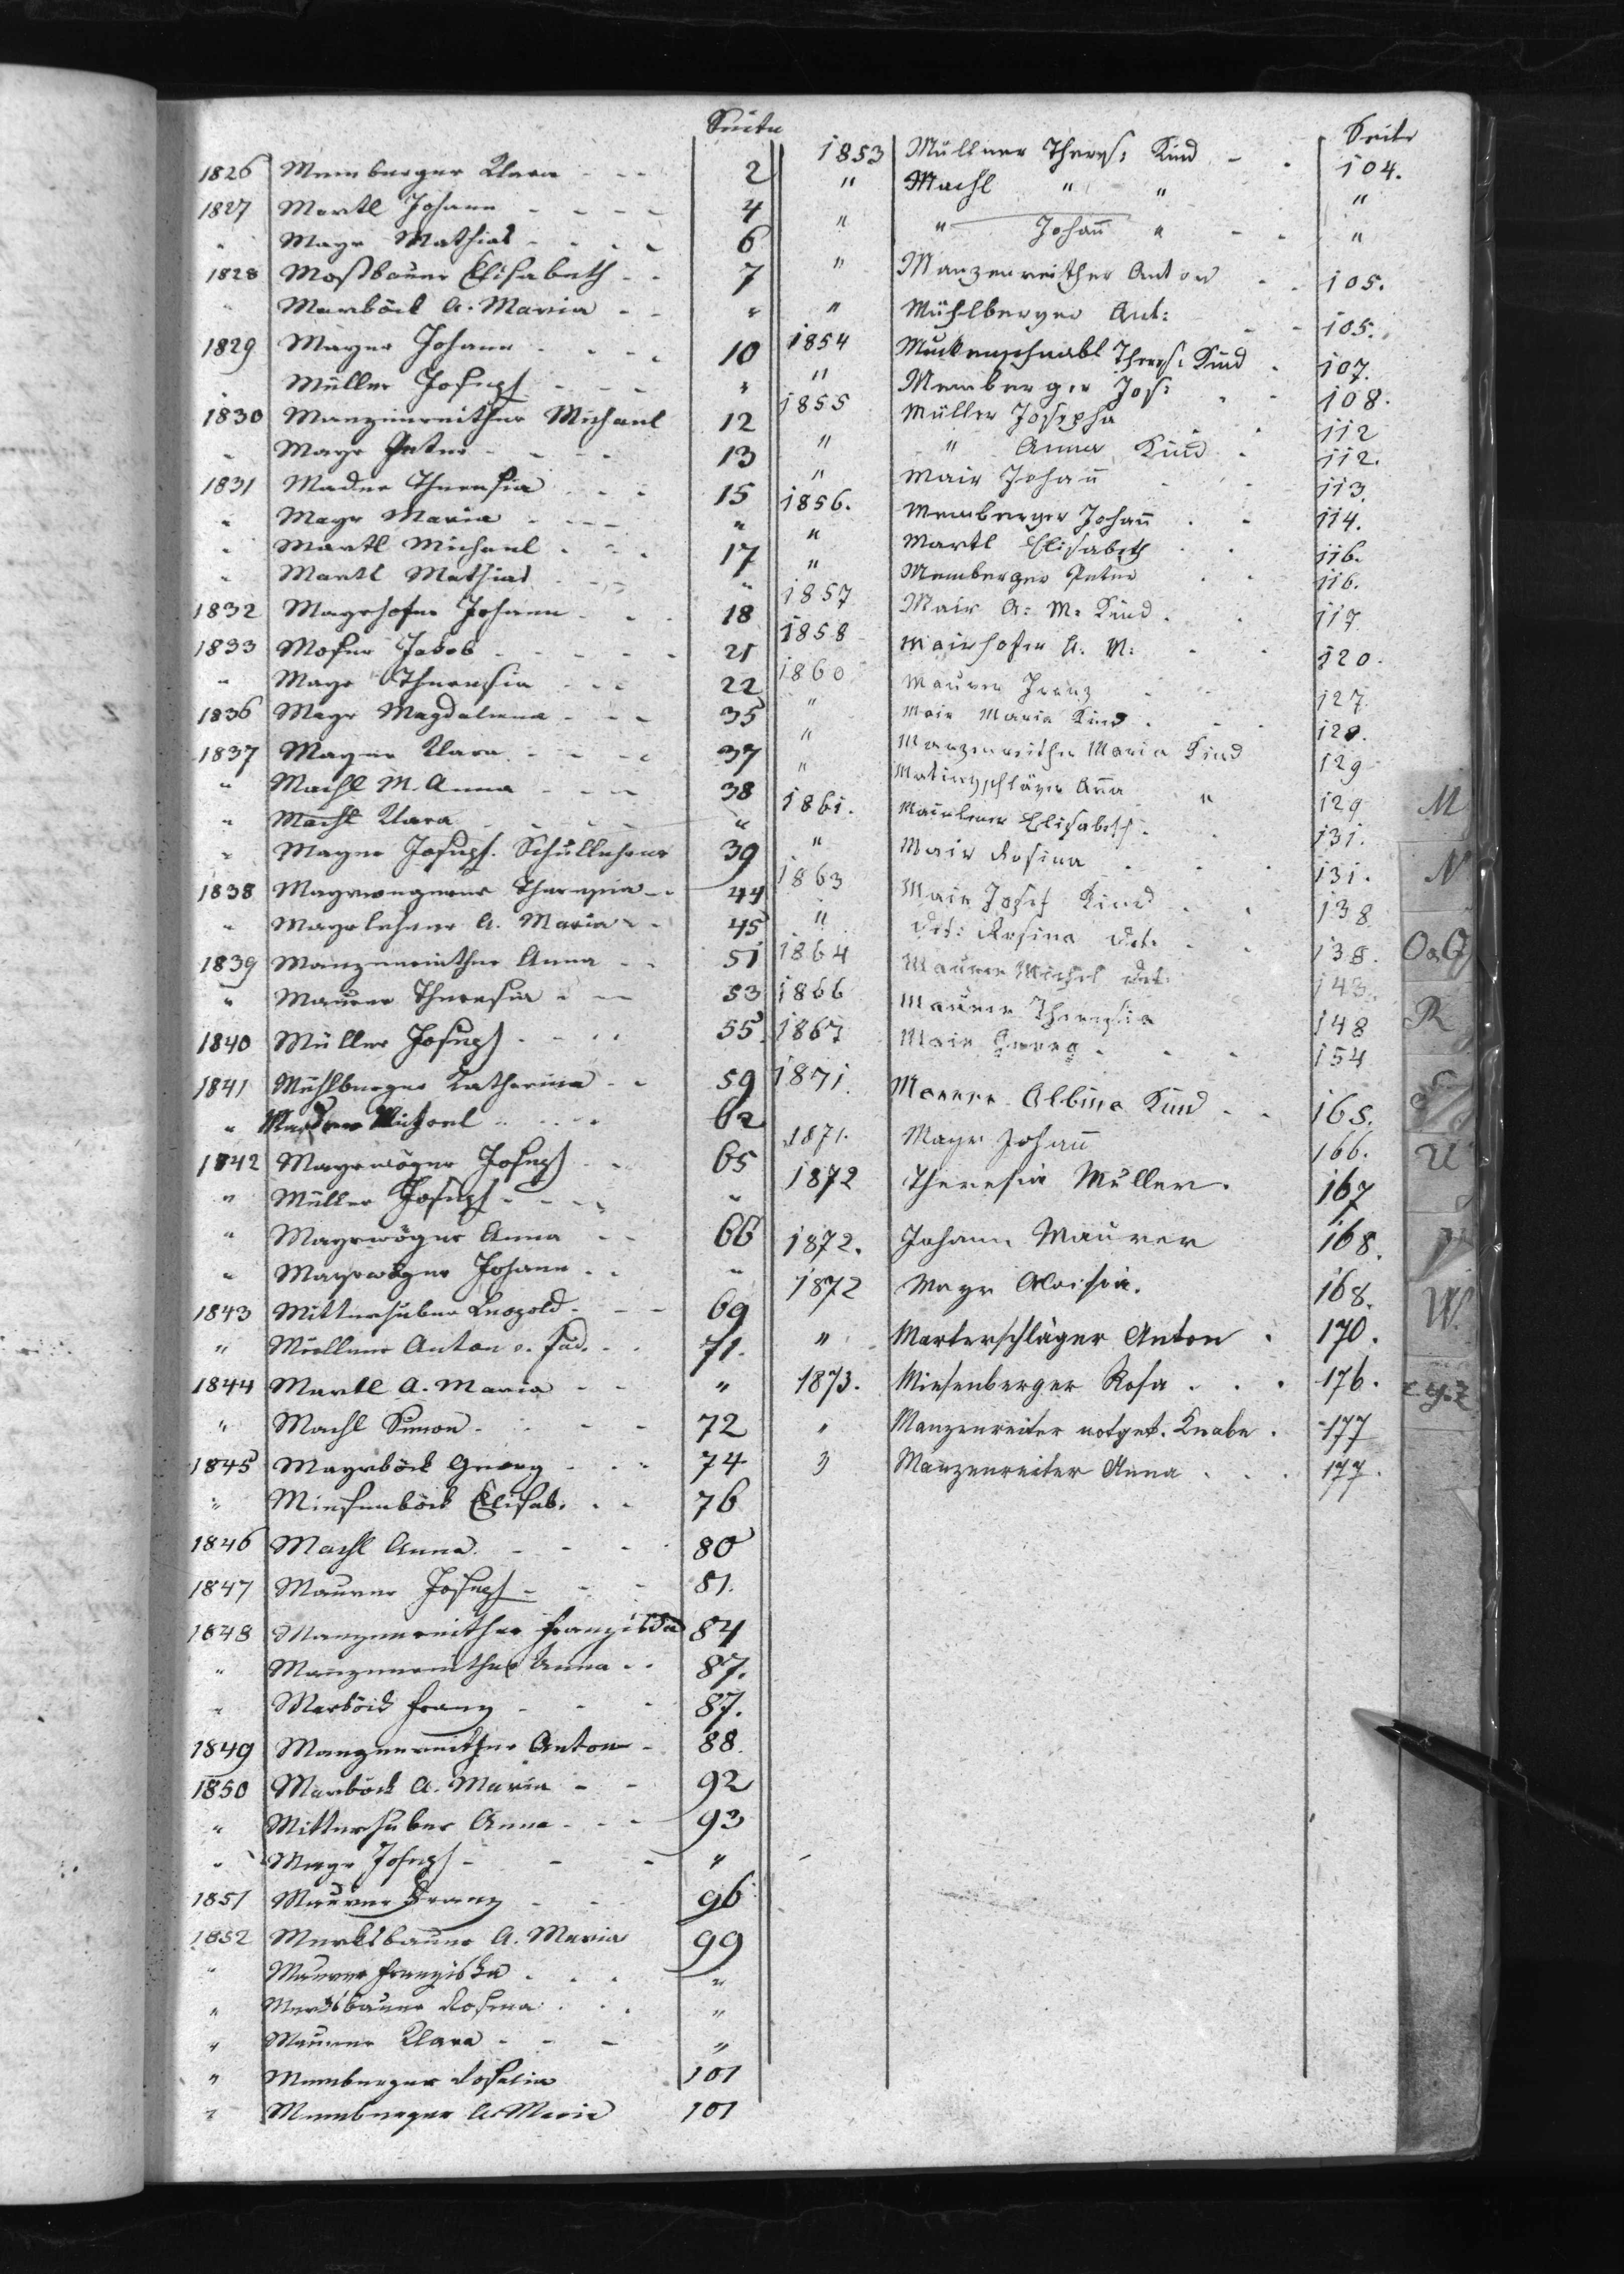 Seite
1826 Memberger Clara - - - 2
1827 Martl Johann - - - - 4
" Mayr Mathias - - - 6
1828 Moßbauer Elisabeth - - 7
" Marböck A. Maria - - "
1829 Mayer Johann - - - - 10
Müller Joseph - - - "
1830 Manzenreither Michael 12
" Mayr Peter - - - - 13
1831 Mader Theresia - - - 15
" Mayr Maria - - - - "
" Martl Michael - - - 17
" Martl Mathias "
1832 Mayrhofer Johann - - - 18
1833 Moser Jakob - - - - - 21
" Mayr Theresia - - - 22
1836 Mayr Magdalena - - - 35
1837 Mayer Clara - - - - 37
" Machl M. Anna - - - 38
" Machl Clara "
" Mayer Joseph. Schullehrer 39
1838 Theresia - - 44
" Mayrlehner A. Maria - - 45
1839 Manzenreither Anna - - 51
" Maurer Theresia - - - 53
1840 Müller Joseph - - - - 55.
1841 Mühlberger Katharina - - 59
" Michael - - - - 62
1842 Mayrwöger Joseph - - 65
" Müller Joseph - - - - "
" Mayrwöger Anna - - 66
" Mayrwöger Johann - - "
1843 Mitterhuber Leopold - - - 69
" Müllner Anton - - 71.
1844 Martl A. Maria - - "
" Machl Simon - - - - 72
1845 Mayrböck Georg - - - 74
" Miesenböck Elisab. - - 76
1846 Machl Anna - - - - 80
1847 Maurer Joseph - - - 81.
1848 Manzenreither Franziska 84
" Manzenreither Anna - - 87.
" Marböck Franz - - - 87.
1849 Manzenreither Anton - 88.
1850 Marböck A. Maria - - 92
" Mitterhuber Anna - - - 93
" Mayr Joseph - - - "
1851 Maurer Franz - - - 96
1852 Merksbauer A. Maria 99
" Maurer Franziska . . . "
" Merksbauer Rosina . . . "
" Maurer Clara - - - "
" Memberger Rosalia 101
" Memberger A. Maria 101
Seite
1853 Müllner Theres: Kind - - 104.
" Machl " " "
" " Johann " - - "
" Manzenreither Anton - - 105.
" Mühlberger Ant: - - 105.
1854 Muckenschnabl Theres: Kind . 107.
" Memberger Jos: - - 108.
1855 Müller Josepha . . 112
" " Anna Kind . 112.
" Mair Johann . . 113.
1856. Memberger Johann . . 114.
" Martl Elisabeth . . 116.
" Memberger Peter . . 116.
1857 Mair A: M: Kind . . 117
1858 Mairhofer A. M: . . 120.
1860 Maurer Franz . . 127
" Mair Maria Kind . . . 128.
" Manzenreither Maria Kind 129
" Anna " 129
1861. Mairlener Elisabeth . . 131.
" Mair Rosina . . . 131.
1863 Mair Josef Kind . . 138
" det: Rosina det: . . 138.
1864 Maurer Michel det: 143.
1866 Maurer Theresia 148
1867 Mair Georg . . . 154
1871. Maurer Albina Kind . . 165.
1871. Mayr Johann 166.
1872 Theresia Müller. 167
1872. Johann Maurer 168.
1872 Mayr Aloisia. 168.
" Marterschläger Anton . 170.
1873. Miesenberger Rosa . . . 176.
" Manzenreiter notget. Knabe . 177
3 Manzenreiter Anna . . . 177.
M
N
O.Q
R
S
U
V
W.
x.y.z